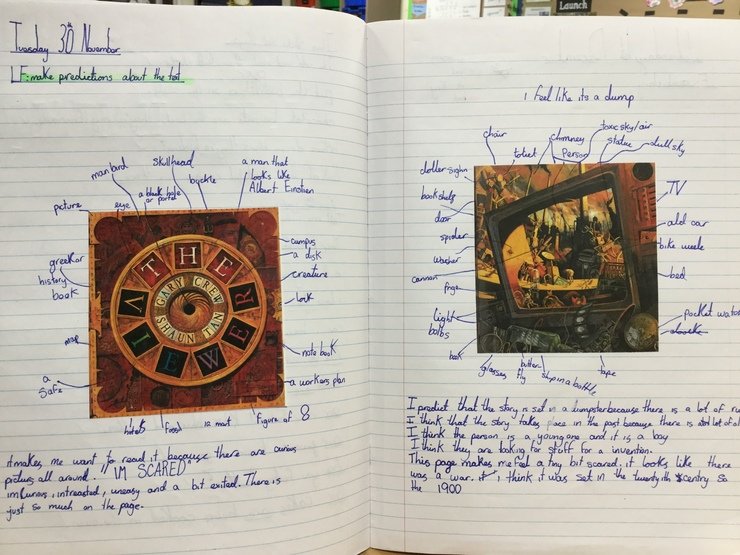 Launch
Tuesday 30th November
LF: make predictions about the text
man bird
skullhead
buckle
a man that
looks like
Albert Einstien
a black hole
or portal
eye
picture
greek or
history
book
map
a
safe
campus
a disk
creature
lock
note book
a workers plan
figure of 8
fossil
THE
VIEWER
GARY CREW
SHAUN TAN
it makes me want to read it because there are curious
picturs all around. "IM SCARED"
im curious, intreasted, uneasy and a bit exited. There is
just so much on the page.
i feel like its a dump
chair
toilet
chomney
person
toxic sky/air
statue
dull sky
doller sighn
book shelf
door
spider
washer
cannon
frige
light
bulbs
book
glasses
fly
button
ship in a bottle
tape
TV
old car
bike weele
bed
pocket watch
clock
I predict that the story is set in a dumpster because there is a lot of ru
I think that the story takes place in the past because there is alot of
I think the person is a young one and it is a boy
I think they are looking for stuff for a invention.
This page makes me feel a tiny bit scared. it looks like there
was a war. it i think it was set in the twentyith centry so
the 1900